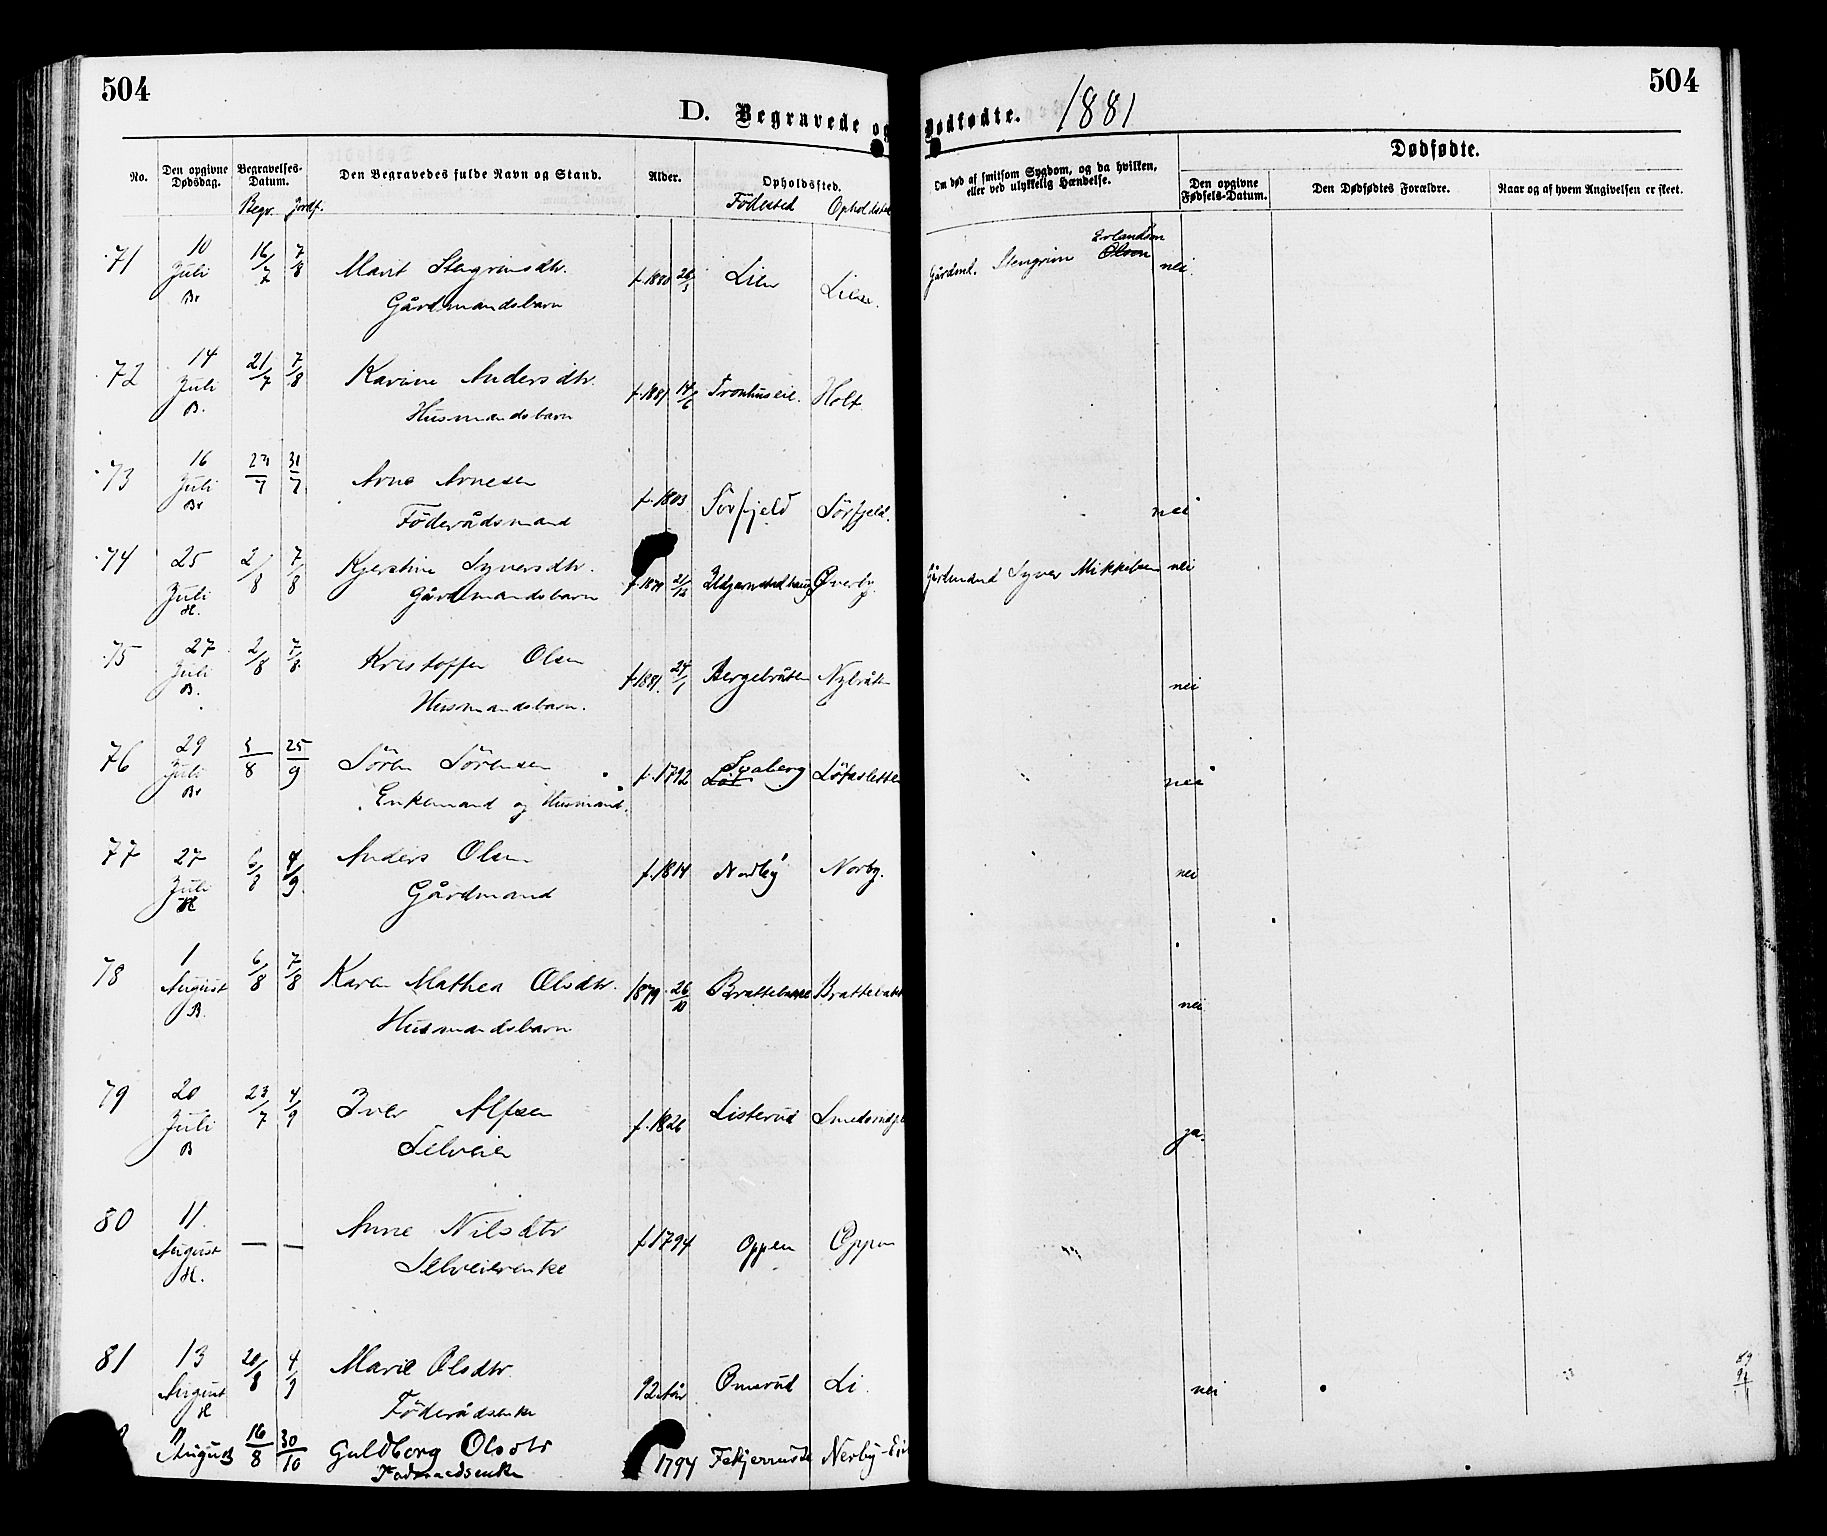 504
504
D. Begravede og Dødfødte. 1881
No.
Den opgivne Dødsdag.
Begravelses-Datum.
Begr. Jordf.
Den Begravedes fulde Navn og Stand.
Alder.
Opholdssted.
Födested Opholdsted
Om død af smitsom Sygdom, og da hvilken, eller ved ulykkelig Hændelse.
Dødfødte.
Den opgivne Fødsels-Datum.
Den Dødfødtes Forældre.
Naar og af hvem Angivelsen er skeet.
71 10 Juli Br 16/7 7/8 Marit Stengrimsdtr. f. 1880 Lien Lien. Gårdmd. Stengrim Olson Erlandson nei.
Gårdmandsbarn
72 14 Juli B. 21/7 7/8 Karine Andersdtr. f. 1881 14/6 Tronhuseie. Holt.
Husmandsbarn
73 16 Juli Br 23/7 31/7 Arne Arnesen f. 1803 Sörfjeld Sörfjeld. nei
Föderådsmand
74 25 Juli H. 2/8 7/8 Kjerstine Syversdtr. f. 1879 21/12 Øverby. Gårdmand Syver Mikkelsen nei
Gårdmandsbarn
75 27 Juli B. 2/8 7/8 Kristoffer Olsen f. 1881. 24/1 Bergebråten Nybråten nei
Husmandsbarn.
76 29 Juli Br 5/8 25/9 Sören Sörensen f. 1792 Svaberg Löt Lötesletten nei
Enkemand og Husmand.
77 27 Juli H 6/8 4/9 Anders Olsen f. 1814 Nordby Norby. nei
Gårdmand
78 1 August B. 6/8 7/8 Karen Mathea Olsdtr. 1879. 26/10 Brattebakke Brattebakk nei
Husmandsbarn
79 20 Juli B 23/7 4/9 Iver Alfsen f. 1826 Listerud ja.
Selveier
80 11. August H. — — Anne Nilsdtr f. 1794 Oppen Oppen
Selveierenke
81 13 August H 20/8 4/9 Marie Olsdtr. 92 år Omsrud Li. nei
Föderådsenke
11 August 16/8 30/10 Guldborg Olsdtr 1794 Nerby-Eie
Föderaadsenke